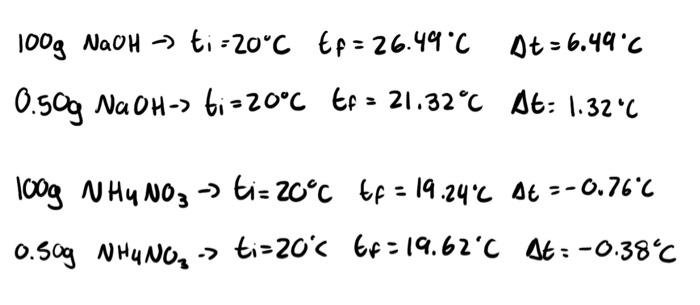 100g NaOH → ti = 20°C tf = 26.49°C Δt = 6.49°C
0.50g NaOH → ti = 20°C tf = 21.32°C Δt = 1.32°C
100g NH4NO3 → ti = 20°C tf = 19.24°C Δt = -0.76°C
0.50g NH4NO3 → ti = 20°C tf = 19.62°C Δt = -0.38°C